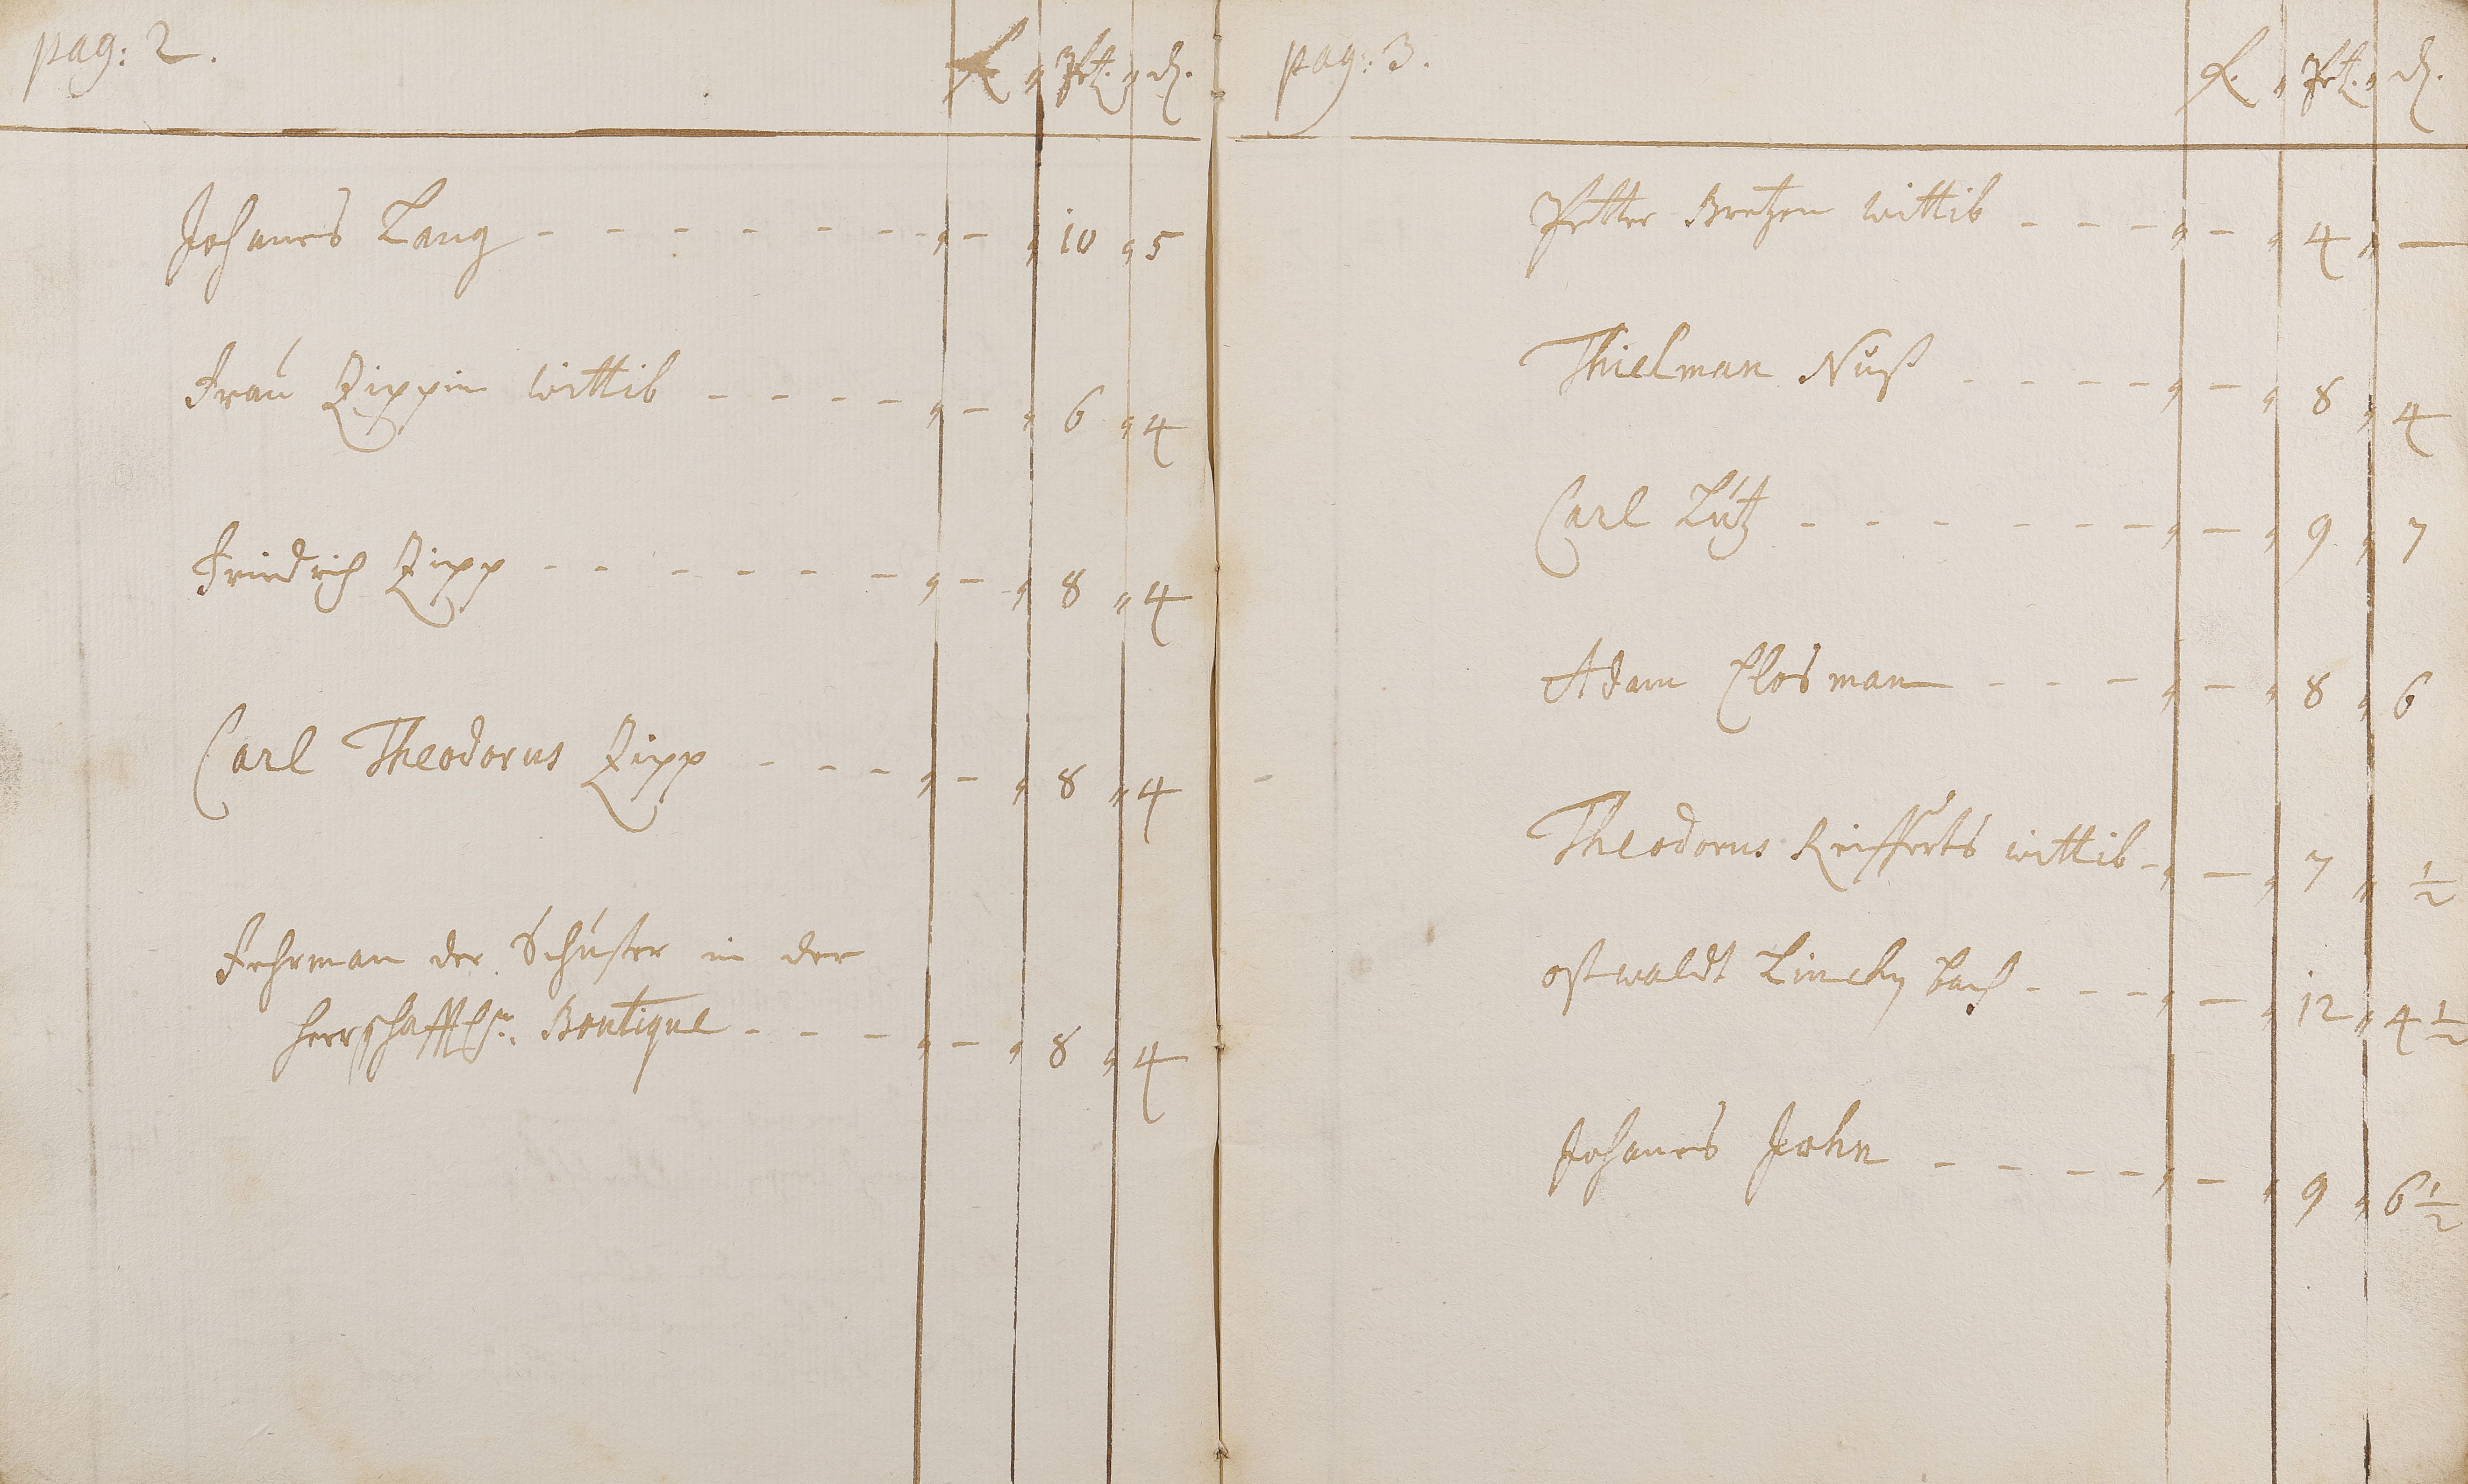 pag: 2.
fl. Pet. d.
Johanes Lang - - - - - - - - 10 5
Fraú Zippin wittib - - - - - 6 4
Friedrich Zipp - - - - - - - 8 4
Carl Theodorus Zipp - - - - 8 4
Fehrman der Schúster in der
herrschafftl. Boutique - - - - 8 4
pag: 3.
fl. Pet. d.
Petter Bretzen wittib - - - - 4 —
Thielman Nŭß - - - - - 8 4
Carl Lútz - - - - - - - 9 7
Adam Closman - - - - 8 6
Theodorus Reifferts wittib - - 7 ½
ostwaldt bach - - - - 12 4½
Johanes John - - - - - 9 6½